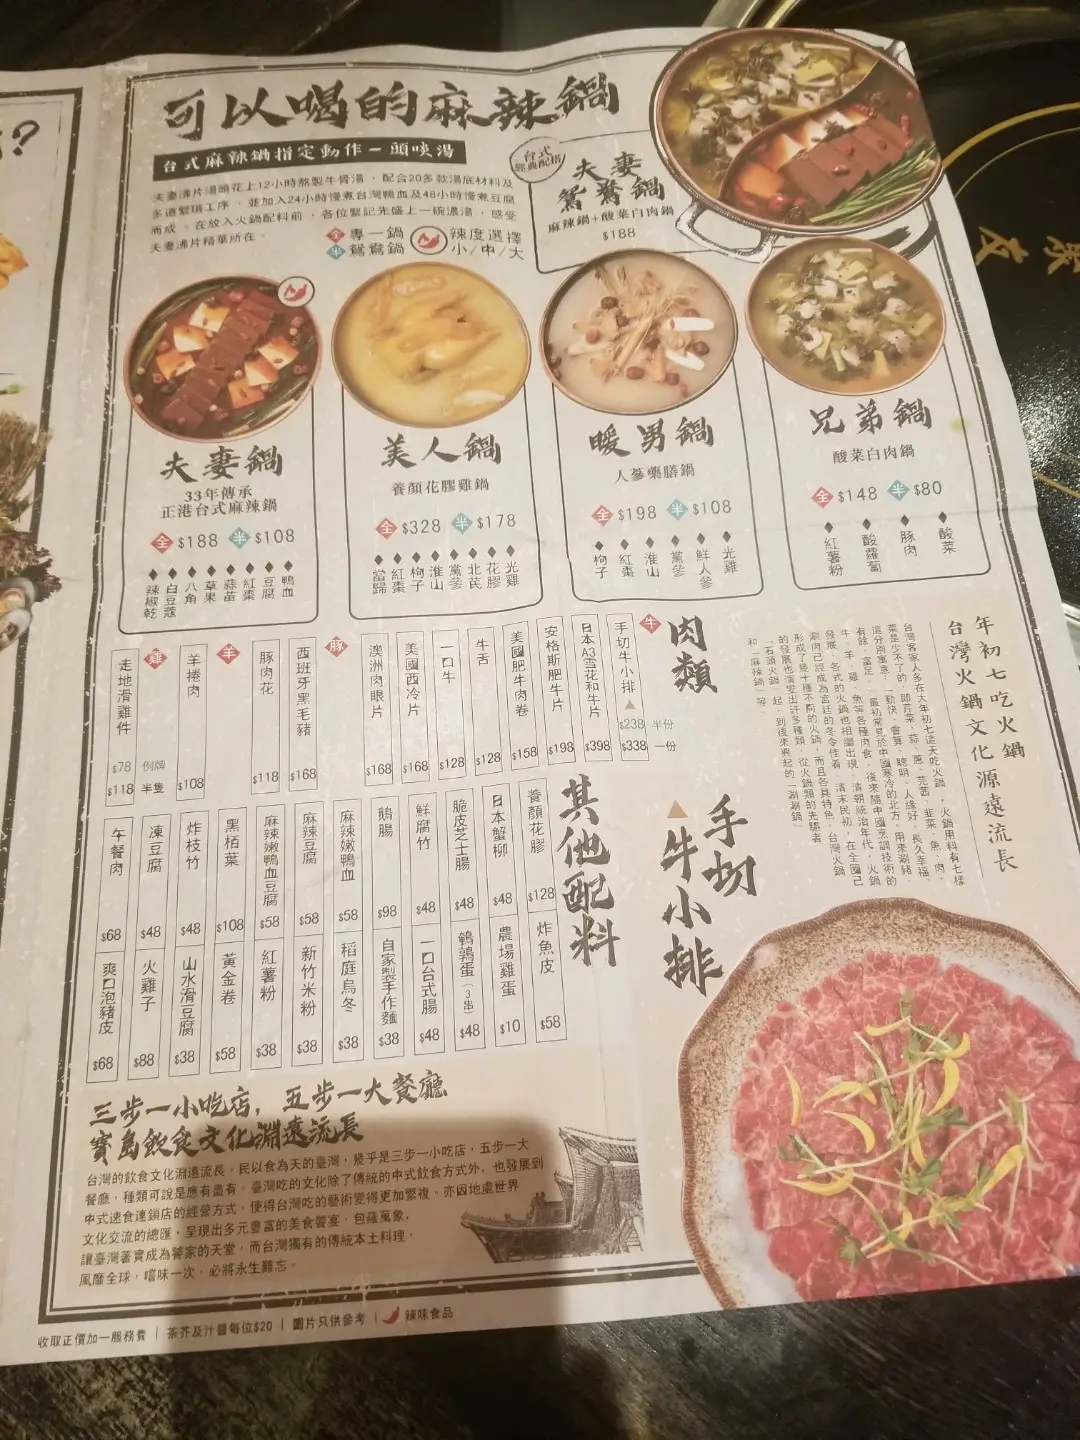 可以喝的麻辣鍋
台式麻辣鍋指定動作－頭啖湯
夫妻沸片湯頭花上12小時熬製牛骨湯，配合20多款湯底材料及
多道繁瑣工序，並加入24小時慢煮台灣鴨血及48小時慢煮豆腐
而成。在放入火鍋配料前，各位緊記先盛上一碗濃湯，感受
夫妻沸片精華所在。
全 專一鍋
半 鴛鴦鍋
辣度選擇
小/中/大
台式
經典配搭
夫妻
鴛鴦鍋
麻辣鍋+酸菜白肉鍋
$188
夫妻鍋
33年傳承
正港台式麻辣鍋
全 $188 半 $108
辣椒乾
白豆蔻
八角
草果
蒜苗
紅棗
豆腐
鴨血
美人鍋
養顏花膠雞鍋
全 $328 半 $178
當歸
紅棗
枸子
淮山
黨參
北芪
花膠
光雞
暖男鍋
人參藥膳鍋
全 $198 半 $108
枸子
紅棗
淮山
黨參
鮮人參
光雞
兄弟鍋
酸菜白肉鍋
全 $148 半 $80
紅薯粉
酸蘿蔔
豚肉
酸菜
肉類
牛
手切牛小排 ▲ $238 半份 $338 一份
日本A3雪花和牛片 $398
安格斯肥牛片 $198
美國肥牛肉卷 $158
牛舌 $128
一口牛 $128
美國西冷片 $168
澳洲肉眼片 $168
豚
西班牙黑毛豬 $168
豚肉花 $118
羊
羊捲肉 $108
雞
走地滑雞件 $78 例牌 $118 半隻
其他配料
養顏花膠 $128
日本蟹柳 $48
脆皮芝士腸 $48
鮮腐竹 $48
鵝腸 $98
麻辣嫩鴨血 $58
麻辣豆腐 $58
麻辣嫩鴨血豆腐 $58
黑栢葉 $108
炸枝竹 $48
凍豆腐 $48
午餐肉 $68
炸魚皮 $58
農場雞蛋 $10
鵪鶉蛋（3串） $48
一口台式腸 $48
自家製手作麵 $38
稻庭烏冬 $38
新竹米粉 $38
紅薯粉 $38
黃金卷 $58
山水滑豆腐 $38
火雞子 $88
爽口泡豬皮 $68
年初七吃火鍋
台灣火鍋文化源遠流長
台灣客家人多在大年初七這天吃火鍋，火鍋用料有七樣
菜是少不了的，即芹菜、蒜、蔥、芫茜、韭菜、魚、肉，
這分別寓意：「動快、會算、聰明、人緣好、長久幸福、
有餘、富足」。最初常見於中國寒冷的北方，用來涮豬、
牛、羊、雞、魚等各種肉食，後來隨中國烹調技術的
發展，各式的火鍋也相繼出現。清朝統治年代，火鍋
涮肉已經成為宮廷的冬令佳肴。清末民初，在全國已
形成了幾十種不同的火鍋，而且各具特色。台灣火鍋
的發展也演變出許多種類，從火鍋類的先驅者
「石頭火鍋」起，到後來興起的「涮涮鍋」
和「麻辣鍋」等。
手切
▲牛小排
三步一小吃店，五步一大餐廳
寶島飲食文化淵遠流長
台灣的飲食文化淵遠流長。民以食為天的臺灣，幾乎是三步一小吃店，五步一大
餐廳，種類可說是應有盡有。臺灣吃的文化除了傳統的中式飲食方式外，也發展到
中式速食連鎖店的經營方式，使得台灣吃的藝術變得更加繁複。亦因地處世界
文化交流的總匯，呈現出多元豐富的美食饗宴，包羅萬象，
讓臺灣著實成為饕家的天堂，而台灣獨有的傳統本土料理，
風靡全球，嚐味一次，必將永生難忘。
收取正價加一服務費 | 茶芥及汁醬每位$20 | 圖片只供參考 | 辣味食品